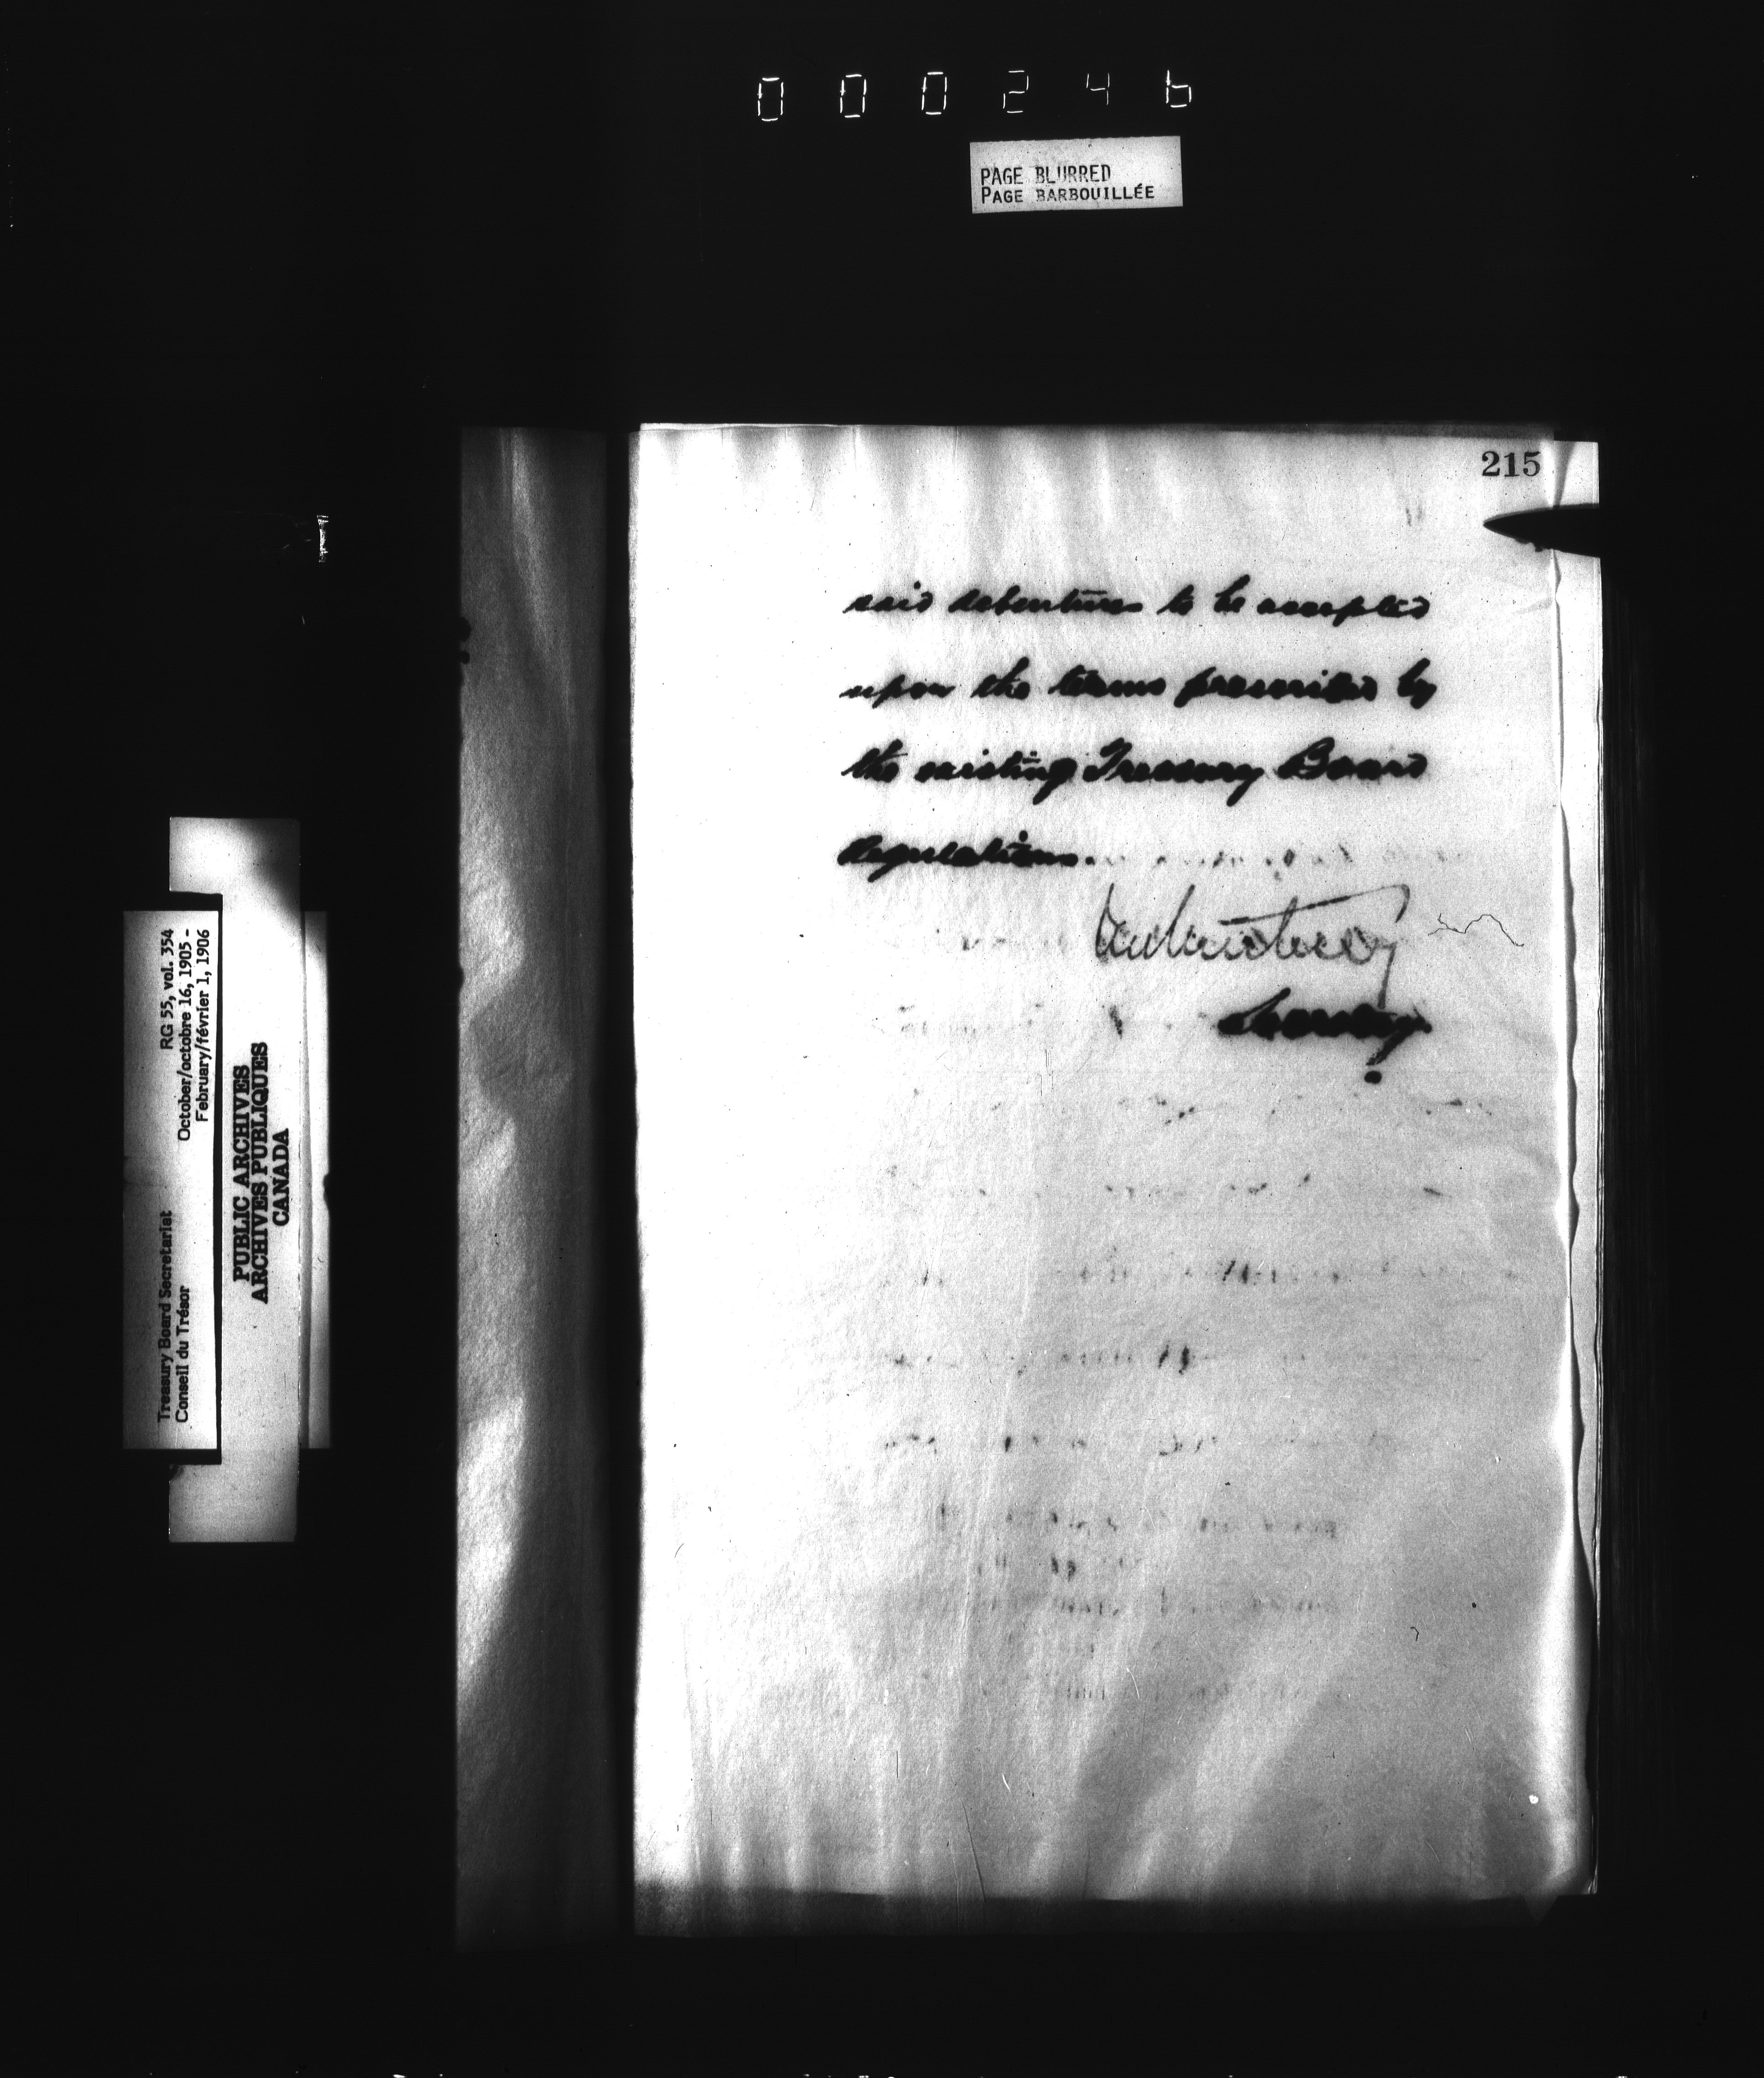 000246
PAGE BLURRED
PAGE BARBOUILLÉE
215
said debentures to be accepted
upon the terms prescribed by
the existing Treasury Board
Regulations.
Secretary
Treasury Board Secretariat RG 55, vol. 354
Conseil du Trésor October/octobre 16, 1905 -
February/février 1, 1906
PUBLIC ARCHIVES
ARCHIVES PUBLIQUES
CANADA